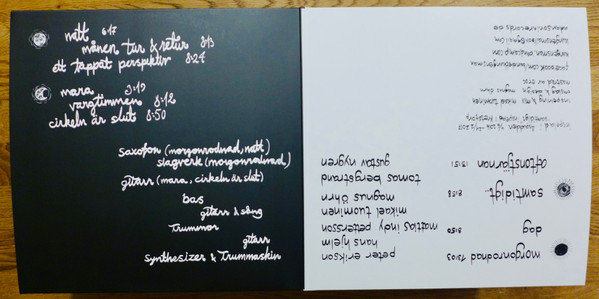 natt 6:17
månen, tur & retur 8:13
ett tappat perspektiv 8:24
mara
vargtimmen
cirkeln är slut 8:50
saxofon (morgonrodnad, natt)
slagverk (morgonrodnad)
gitarr (mara, cirkeln är slut)
bas
gitarr & sång
trummor
gitarr
synthesizer & trummaskin
morgonrodnad 13:03
dag 8:50
samtidigt... 8:58
aftonstjärnan 13:51
peter erikson
hans hjelm
mattias indy pettersson
mikael tuominen
magnus öhrn
tomas bergstrand
gustav nygren
inspelad
mikael tuominen
omslag & design magnus öhrn